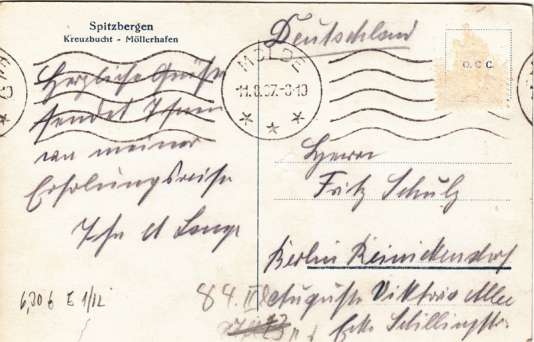 Spitzbergen
Kreuzbucht - Möllerhafen
Herzliche Grüße
sendet Ihnen
von meiner
Erholungsreise
Ihr A Lange
6,306 E 1/12
Deutschland
MOLDE
11.8.37.-8-10
O.C.C.
Herrn
Fritz Schulz
Berlin Reinickendorf
Auguste Viktoria Allee
Ecke Schillingstr.
84. II